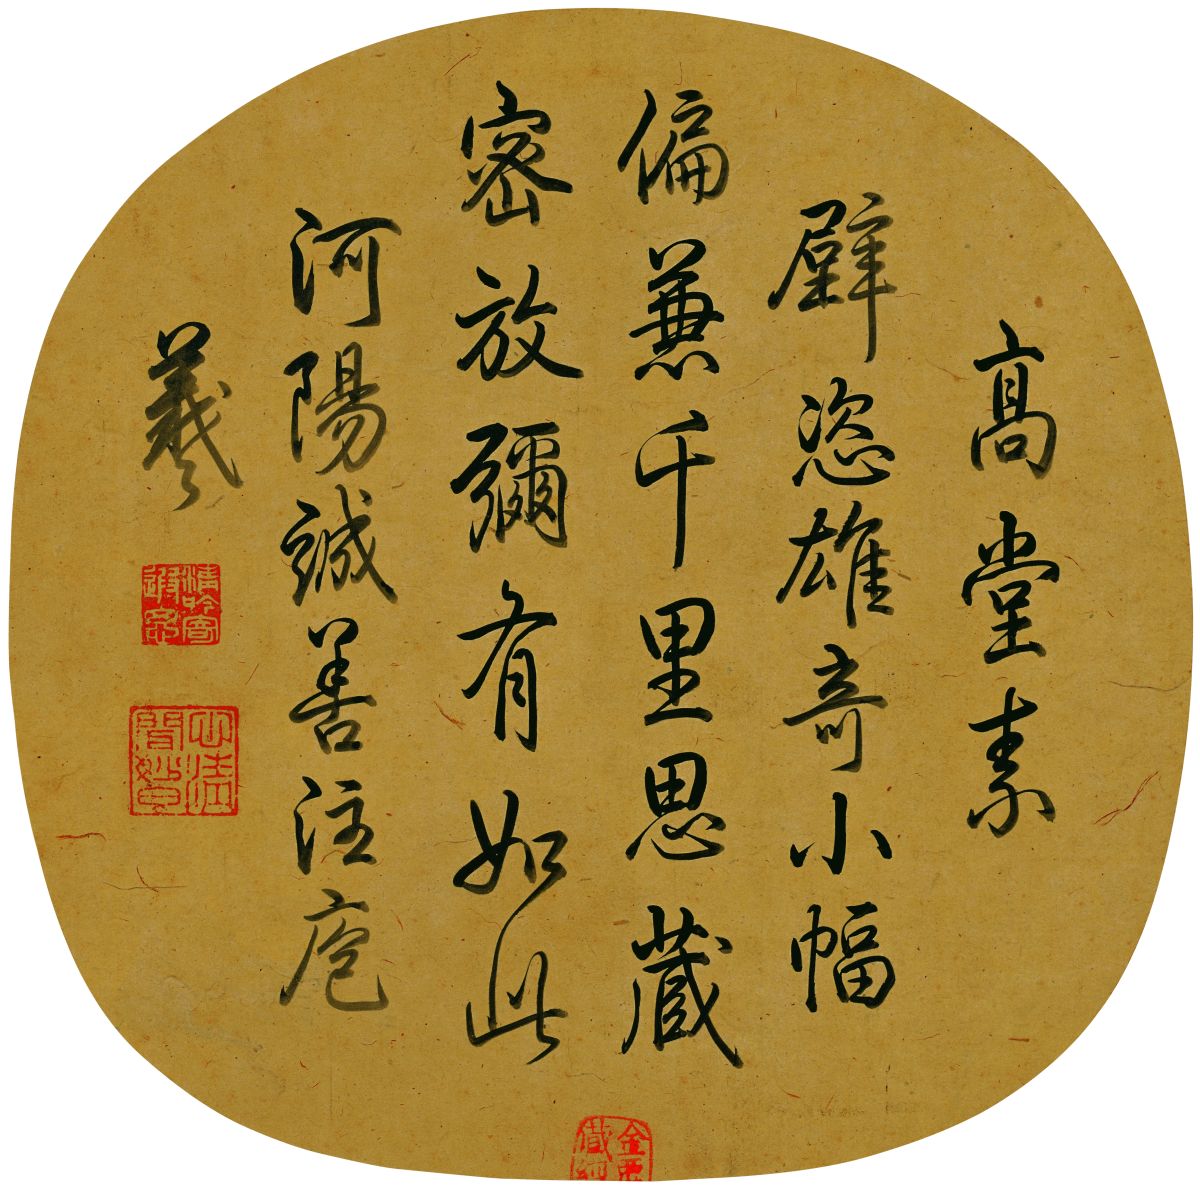 高堂素
壁恣雄奇小幅
偏兼千里思藏
密放彌有如此
河陽誠善注庖
羲
心清聞妙香